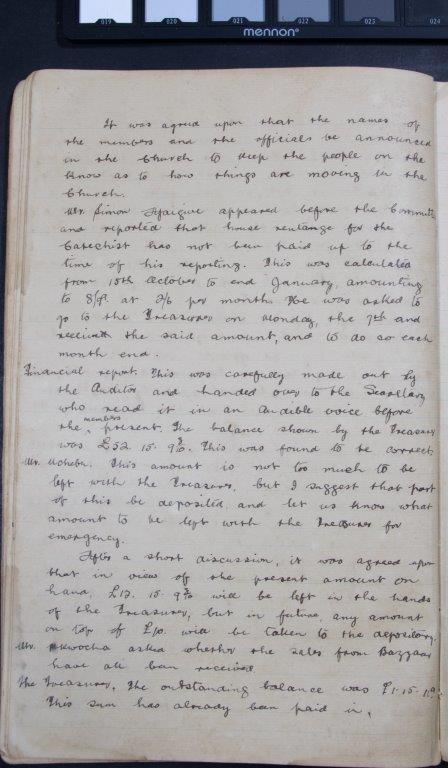 019 020 021 022 023 024
mennon®
It was agreed upon that the names of
the members and the officials be announced
in the Church to keep the people on the
know as to how things are moving in the
Church.
Mr. Simon appeared before the Committe
and reported that house rentage for the
Catechist has not been paid up to the
time of his reporting. This was calculated
from 15th October to end January, amounting
to at 2/6 per month. He was asked to
go to the Treasurer on Monday, the 7th and
receive the said amount, and to do so each
month end.
Financial report. This was carefully made out by
the Auditor and handed over to the Secretary
who read it in an audible voice before
the members present. The balance shown by the Treasurer
was £52. 15. This was found to be correct
Mr. Uchebu. This amount is not too much to be
left with the Treasurer, but I suggest that part
of this be deposited, and let us know what
amount to be left with the Treasurer for
emergency.
After a short discussion, it was agreed upon
that in view of the present amount on
hand, £12. 15. will be left in the hands
of the Treasurer, but in future, any amount
on top of £10. will be taken to the depository.
Mr. Nkwocha asked whether the sales from Bazzaar
have all been received.
The Treasurer, The outstanding balance was £1. 15.
This sum has already been paid in.